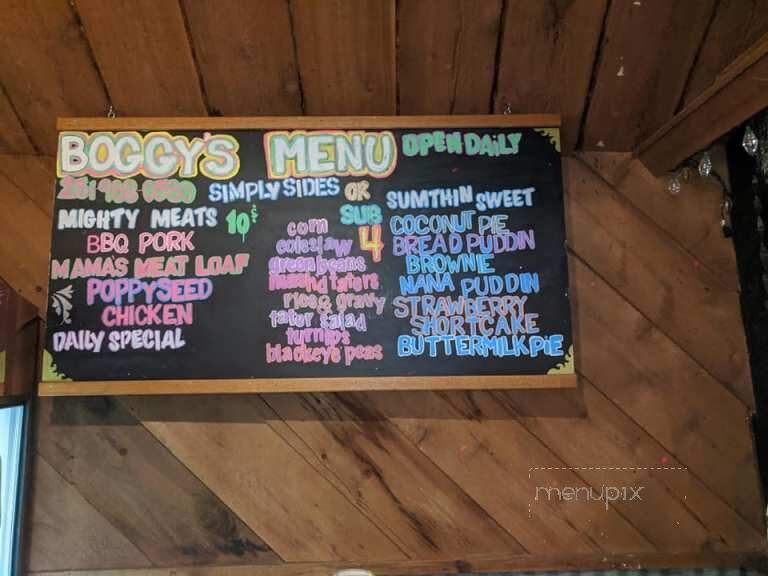 BOGGY'S MENU OPEN DAILY
SIMPLY SIDES OR SUB 4
MIGHTY MEATS 10
BBQ PORK
MAMA'S MEAT LOAF
POPPYSEED
CHICKEN
DAILY SPECIAL
corn
coleslaw
green beans
mashd taters
rice & gravy
tater salad
turnips
blackeye peas
SUMTHIN SWEET
COCONUT PIE
BREAD PUDDIN
BROWNIE
NANA PUDDIN
STRAWBERRY
SHORTCAKE
BUTTERMILK PIE
menupix